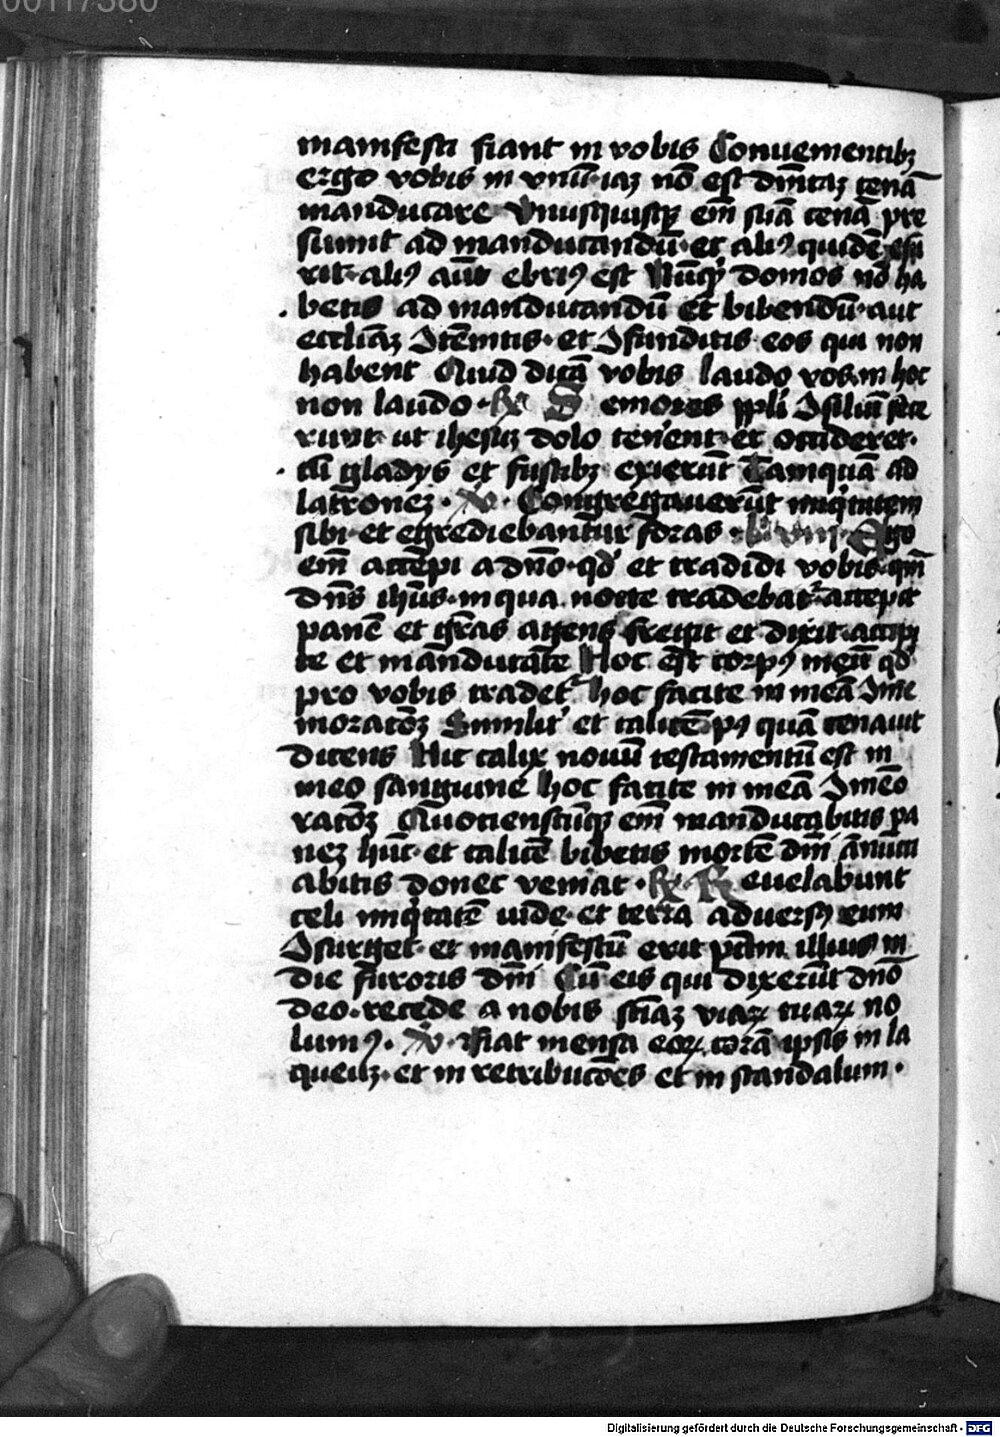 00117380
manifesti fiant in vobis Conuenientibꝫ
ergo vobis in vnū·iaꝫ nō est dn̄icaꝫ cenā
māducare Vnusquisqꝫ em̄ suā cenā pre
sumit ad manducandū·et aliꝰ quidē esu
rit·aliꝰ aūt ebriꝰ est Nūqͥd domos nō ha
betis ad manducandū et bibendū·aut
eccliāꝫ ꝯtēnitis·et ꝯfunditis eos qui non
habent Quid dicā vobis laudo vos·in hoc
non laudo·℟ Seniores ppl̄i ꝯsiliū fece
runt·ut ihesuꝫ dolo tenēent·et occiderēt·
cū gladijs et fustibꝫ exierūt Tamquā ad
latroneꝫ·℣·Congregauerūt iniqͥtatem
sibi·et egrediebant̄ur foras·lc̄ viij·Ego
em̄ accēpi a dn̄o·qd̓ et tradidi vobis·qm̄
dn̄s ihūs·in qua nocte tradebat᷑·accepit
panē et gr̄as agens fregit et dixit·accipi
te et manducāte Hoc est corpꝰ meū qd̓
pro vobis tradet᷑ hoc facite in meā ꝯme
moracōꝫ Similit᷑ et calicē·pꝰ quā cenauit
dicens Hic calix nouū testamentū est in
meo sanguine hoc facite in meā ꝯmēo
racōꝫ Quocienscūqꝫ em̄ manducabitis pa
neꝫ hūc·et calicē bibetis mortē dn̄i ānūcci
abitis donec veniat·℟·Reuelabunt
celi iniqͥtatē iude·et terra aduersꝰ eum
ꝯsurget·et manifestū erit pcc̄m illius in
die furoris dn̄i Cū eis qui dixerūt dn̄o
deo·recede a nobis sciāꝫ viaꝝ tuaꝝ no
lumꝰ·℣·Fiat mensa eoꝝ corā ipsis in la
queūꝫ·et in retribucōes et in scandalum·
Digitalisierung gefördert durch die Deutsche Forschungsgemeinschaft - DFG